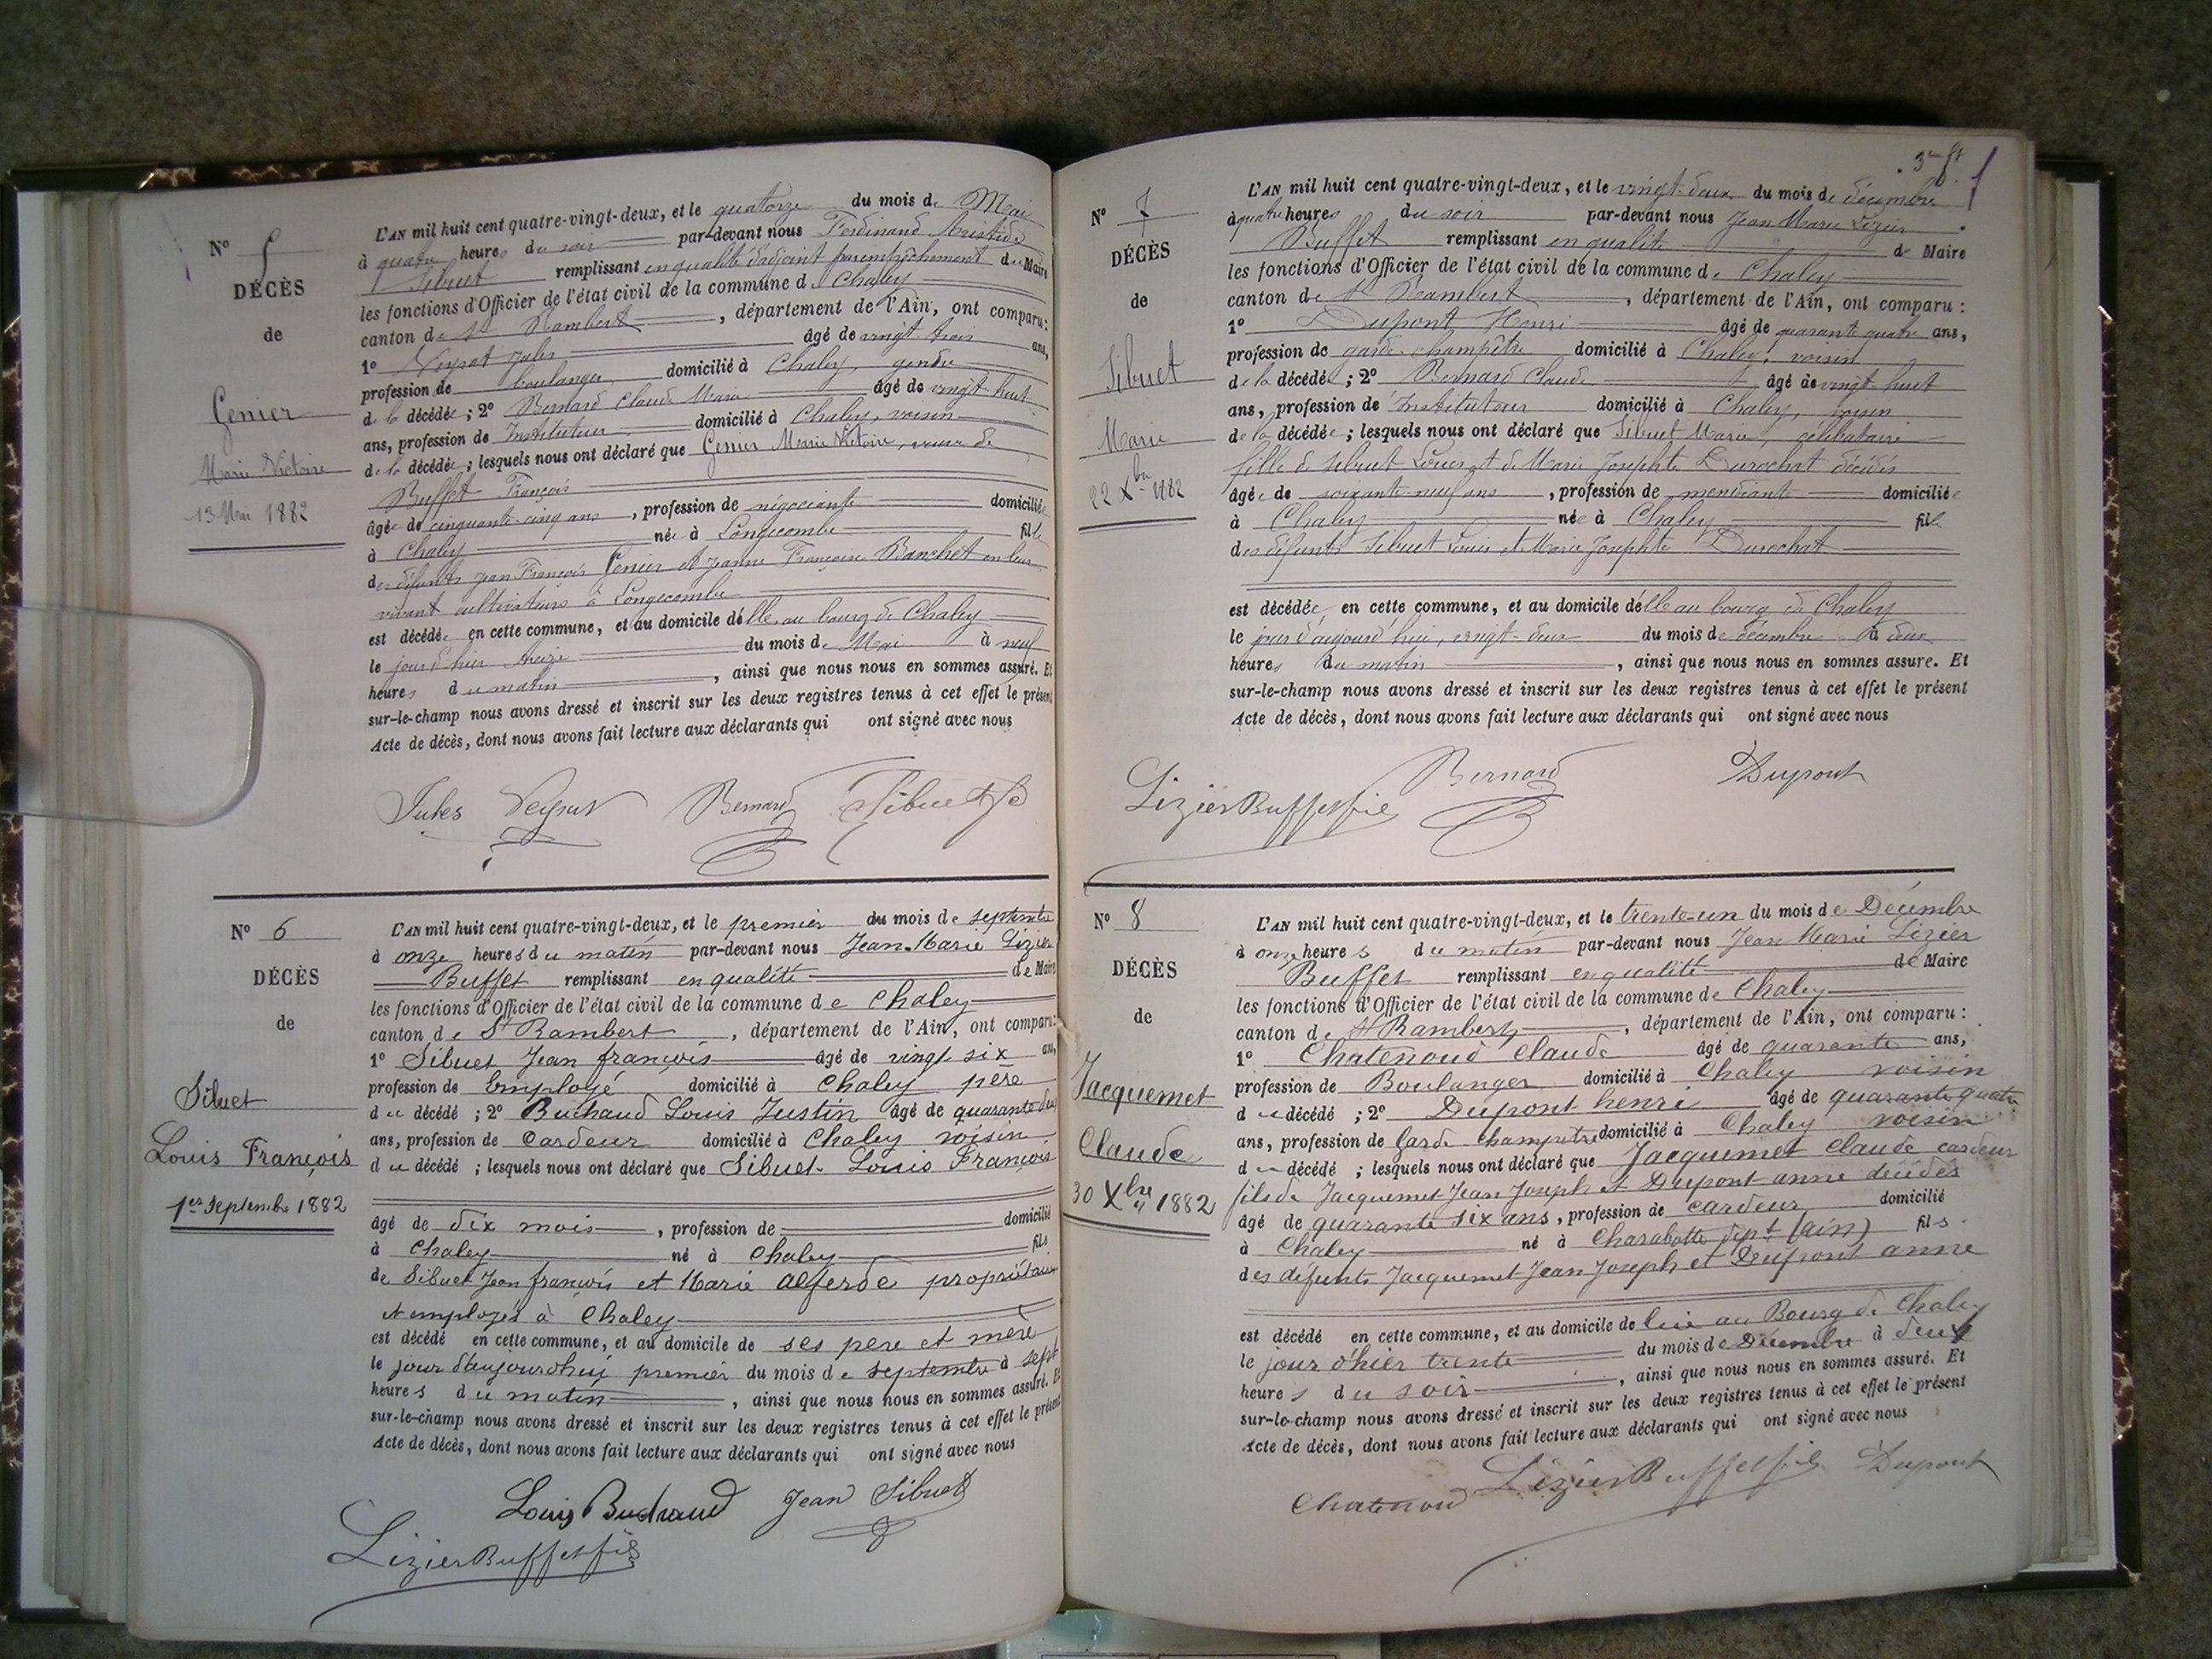 N° 5
DÉCÈS
de
Genier
Marie Victoire
13 Mai 1882
L'AN mil huit cent quatre-vingt-deux, et le quatorze du mois de Mai
à quatre heures du soir par-devant nous Ferdinand Aristide
Sibuet remplissant en qualité d'adjoint par empêchement du Maire
les fonctions d'Officier de l'état civil de la commune de Chaley
canton de St Rambert, département de l'Ain, ont comparu :
1° Neyrat Jules âgé de vingt trois ans,
profession de boulanger domicilié à Chaley, gendre
de la décédée ; 2° Bernard Claude Marie âgé de vingt huit
ans, profession de Instituteur domicilié à Chaley, voisin
de la décédée ; lesquels nous ont déclaré que Genier Marie Victoire, veuve de
Buffet François
âgée de cinquante-cinq ans, profession de négociante domiciliée
à Chaley née à Longecombe fille
des défunts Jean François Genier et Jeanne Françoise Banchet en leur
vivant cultivateurs à Longecombe
est décédée en cette commune, et au domicile d'elle au bourg de Chaley
le jour d'hier treize du mois de Mai à neuf
heures du matin, ainsi que nous nous en sommes assuré. Et
sur-le-champ nous avons dressé et inscrit sur les deux registres tenus à cet effet le présent
Acte de décès, dont nous avons fait lecture aux déclarants qui ont signé avec nous
Jules Bernard Sibuet
N° 6
DÉCÈS
de
Sibuet
Louis François
1er Septembre 1882
L'AN mil huit cent quatre-vingt-deux, et le premier du mois de septembre
à onze heures du matin par-devant nous Jean-Marie Lizier
Buffet remplissant en qualité de Maire
les fonctions d'Officier de l'état civil de la commune de Chaley
canton de St Rambert, département de l'Ain, ont comparu :
1° Sibuet Jean françois âgé de vingt six ans,
profession de Employé domicilié à Chaley père
du décédé ; 2° Buchaud Louis Justin âgé de quarante deux
ans, profession de Cardeur domicilié à Chaley voisin
du décédé ; lesquels nous ont déclaré que Sibuet Louis François
âgé de dix mois, profession de domicilié
à Chaley né à Chaley fils
de Sibuet Jean françois et Marie propriétaires
et employés à Chaley
est décédé en cette commune, et au domicile de ses père et mère
le jour d'aujourd'hui premier du mois de septembre à sept
heures du matin, ainsi que nous nous en sommes assuré. Et
sur-le-champ nous avons dressé et inscrit sur les deux registres tenus à cet effet le présent
Acte de décès, dont nous avons fait lecture aux déclarants qui ont signé avec nous
Louis Buchaud Jean Sibuet
Lizier Buffet fils
N° 7
DÉCÈS
de
Sibuet
Marie
22 Xbre 1882
L'AN mil huit cent quatre-vingt-deux, et le vingt-deux du mois de décembre
à quatre heures du soir par-devant nous Jean Marie Lizier
Buffet remplissant en qualité de Maire
les fonctions d'Officier de l'état civil de la commune de Chaley
canton de St Rambert, département de l'Ain, ont comparu :
1° Dupont Henri âgé de quarante quatre ans,
profession de garde-champêtre domicilié à Chaley, voisin
de la décédée ; 2° Bernard Claude âgé de vingt huit
ans, profession de Instituteur domicilié à Chaley, voisin
de la décédée ; lesquels nous ont déclaré que Sibuet Marie, célibataire
fille de Sibuet Louis et de Marie Josephte Durochat décédés
âgée de soixante-neuf ans, profession de mendiante domiciliée
à Chaley née à Chaley fille
des défunts Sibuet Louis et Marie Josephte Durochat
est décédée en cette commune, et au domicile d'elle au bourg de Chaley
le jour d'aujourd'hui, vingt-deux du mois de décembre à deux
heures du matin, ainsi que nous nous en sommes assuré. Et
sur-le-champ nous avons dressé et inscrit sur les deux registres tenus à cet effet le présent
Acte de décès, dont nous avons fait lecture aux déclarants qui ont signé avec nous
Lizier Buffet fils Bernard Dupont
N° 8
DÉCÈS
de
Jacquemet
Claude
30 Xbre 1882
L'AN mil huit cent quatre-vingt-deux, et le trente-un du mois de Décembre
à onze heures du matin par-devant nous Jean Marie Lizier
Buffet remplissant en qualité de Maire
les fonctions d'Officier de l'état civil de la commune de Chaley
canton de St Rambert, département de l'Ain, ont comparu :
1° Chatenoud Claude âgé de quarante ans,
profession de Boulanger domicilié à Chaley voisin
du décédé ; 2° Dupont henri âgé de quarante quatre
ans, profession de Garde Champêtre domicilié à Chaley voisin
du décédé ; lesquels nous ont déclaré que Jacquemet Claude cardeur
fils de Jacquemet Jean Joseph et Dupont anne décédés
âgé de quarante six ans, profession de cardeur domicilié
à Chaley né à Charabotte dept (ain) fils
des défunts Jacquemet Jean Joseph et Dupont anne
est décédé en cette commune, et au domicile de lui au Bourg de Chaley
le jour d'hier trente du mois de Décembre à deux
heures du soir, ainsi que nous nous en sommes assuré. Et
sur-le-champ nous avons dressé et inscrit sur les deux registres tenus à cet effet le présent
Acte de décès, dont nous avons fait lecture aux déclarants qui ont signé avec nous
Chatenoud Lizier Buffet fils Dupont